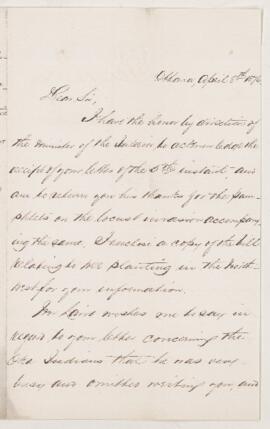 Ottawa, April 8th 1876
Dear Sir,
I have the honor by direction of
the Minister of the Interior to acknowledge the
receipt of your letter of the 5th instant and
am to return you his thanks for the pam-
phlets on the locust invasion accompany-
ing the same. I enclose a copy of the bill
relating to tree planting in the North-
west for your information.
Mr Laird wishes me to say in
regard to your letter concerning the
Indians that he was very
busy and omitted writing you, and